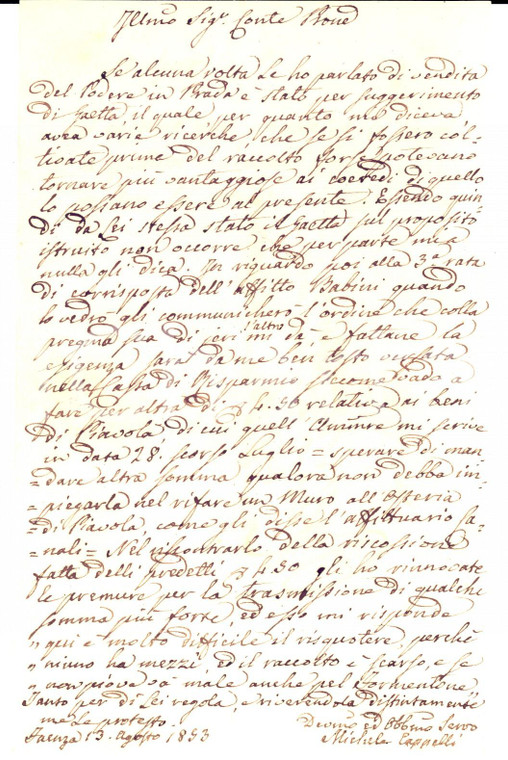 Illmo Sigr Conte Prone
Se alcuna volta Le ho parlato di vendita
del Podere in Prada è stato per suggerimento
di Gaetta, il quale, per quanto mi diceva,
avea varie ricerche, che se si fossero col-
tivate prima del raccolto forse potevano
tornare più vantaggiose ai coeredi di quello
lo possano essere al presente. Essendo quin-
di da Lei stessa stato il Gaetta sul proposito
istruito non occorre che per parte mia
nulla gli dica. In riguardo poi alla 3a rata
di corrisposta dell'affitto Babini quando
lo vedrò gli communicherò l'ordine che colla
pregma sua di jeri l'altro mi dà, e fattane la
esigenza sarà da me ben tosto versata
nella Cassa di Risparmio siccome vado a
fare per altra di 4.50 relativa ai beni
di Piavola, di cui quell' mi scrive
in data 28. scorso Luglio = sperare di man-
= dare altra somma qualora non debba im-
= piegarla nel rifare un Muro all'Osteria
= di Piavola, come gli disse l'affittuario Ca-
= nali = Nel riscontrarlo della riscossione
fatta delli predetti 4.50 gli ho rinnovate
le premure per la trasmissione di qualche
somma più forte, ed esso mi risponde
" qui è molto difficile il risquotere, perchè
" niuno ha mezzi, ed il raccolto è scarso, e se
" non piove và male anche pel formentone,
Tanto per di Lei regola, e riverendola distintamente
me Le protesto.
Devmo ed Obbmo Servo
Faenza 13. Agosto 1853
Michele Cappelli